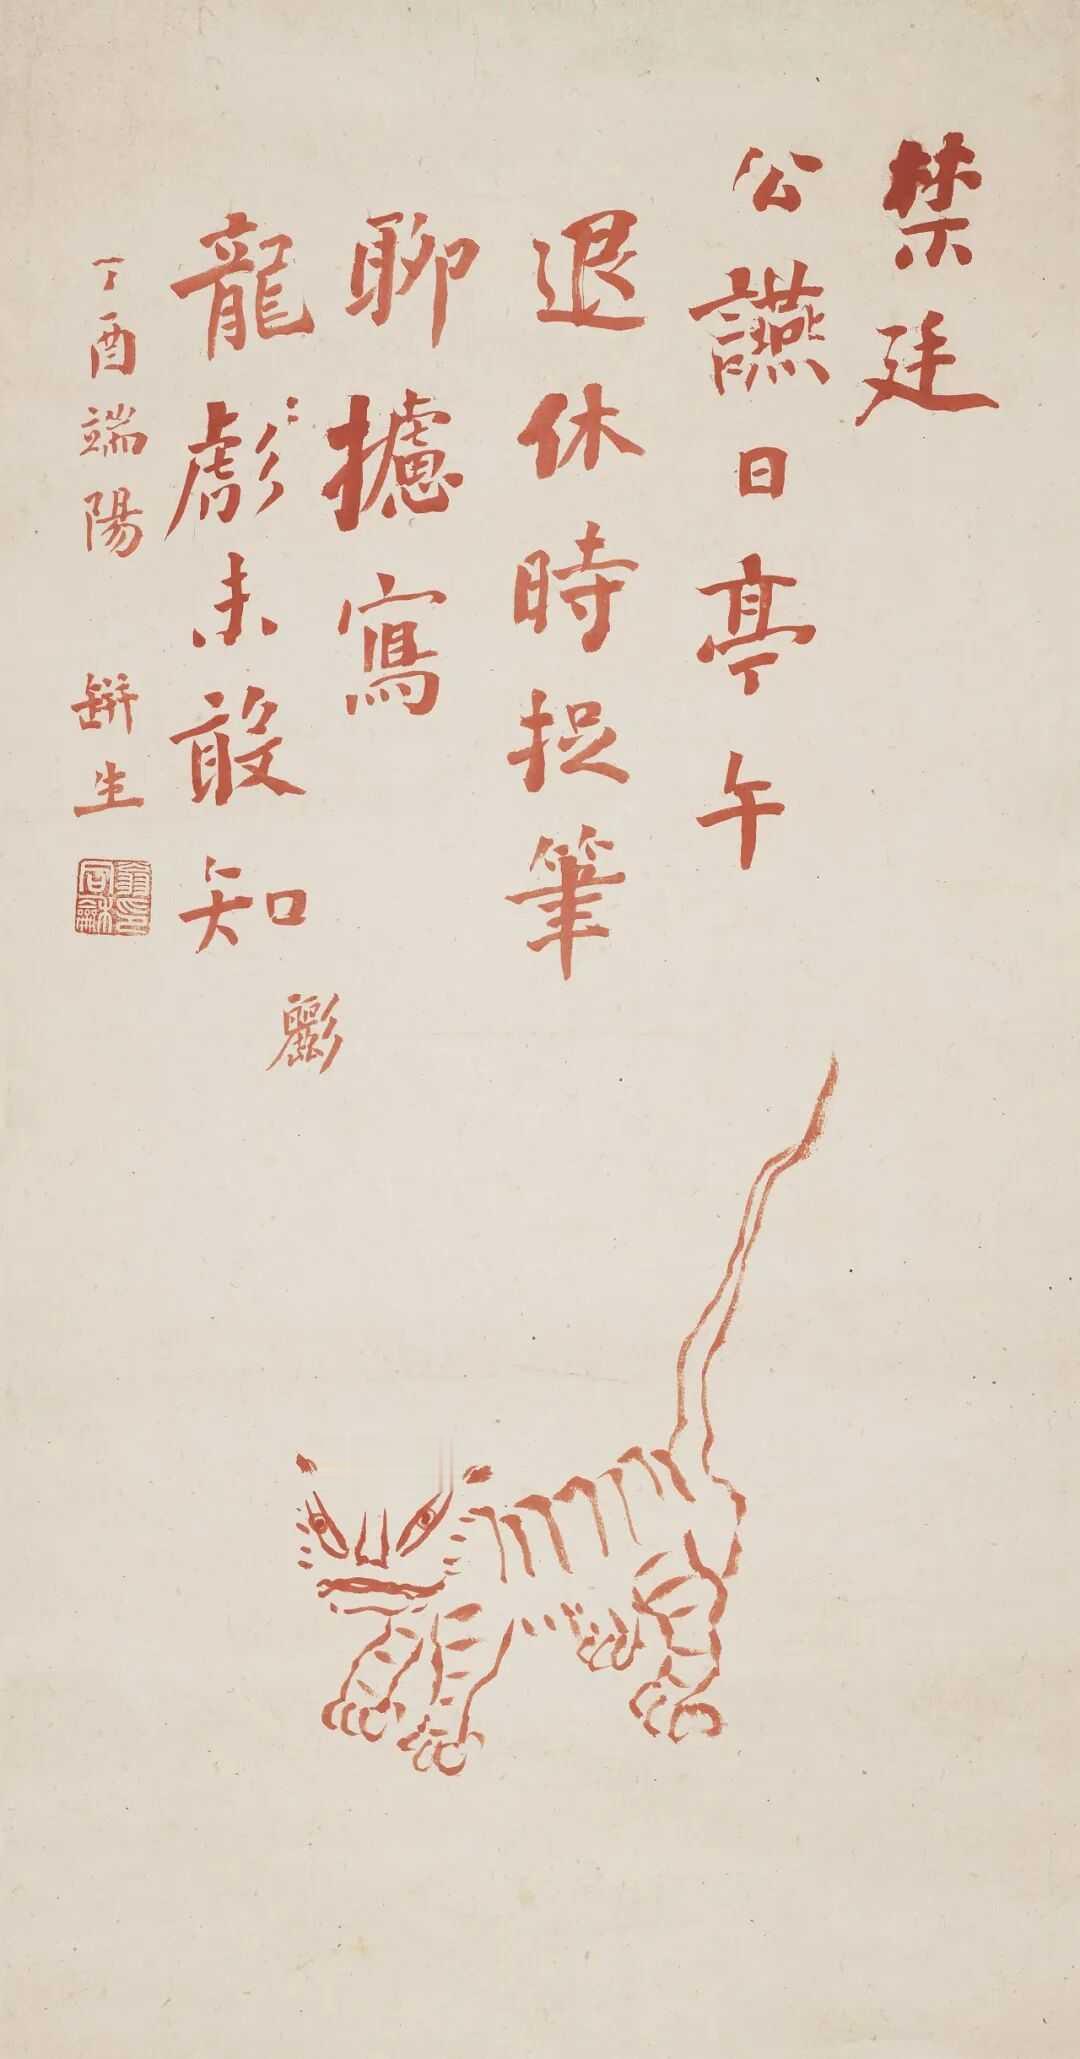 禁廷
公讌日亭午
退休時捉筆
聊攄寫
龍彪未敢知
彲
丁酉端陽 缾生
翁同龢印